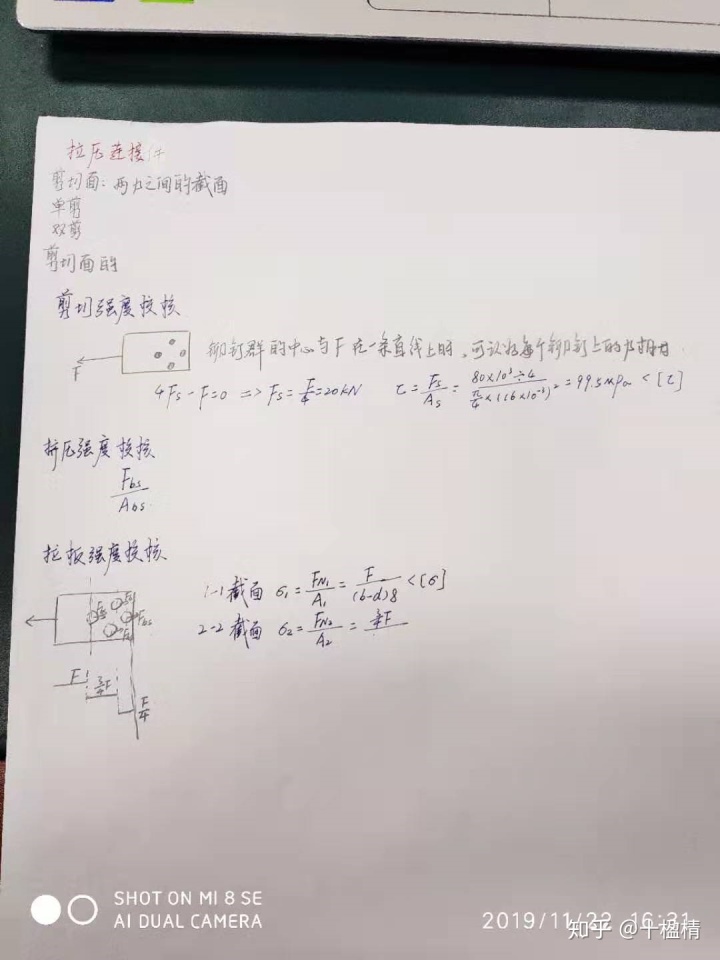 拉压连接件
剪切面：两力之间的截面
单剪
双剪
剪切面的
剪切强度校核
F
铆钉群的中心与F在一条直线上时，可认为每个铆钉上的力相等
4Fs-F=0 => Fs=F/4=20kN τ=Fs/As=80×10³÷4/(π/4×(16×10⁻³)²)=99.5MPa<[τ]
挤压强度校核
Fbs/Abs
拉板强度校核
1-1截面 σ₁=FN₁/A₁=F/(b-d)δ<[σ]
2-2截面 σ₂=FN₂/A₂=¾F
Fbs
F
¾F
F/4
SHOT ON MI 8 SE
AI DUAL CAMERA
2019/11/22 16:31
知乎 @十楹精